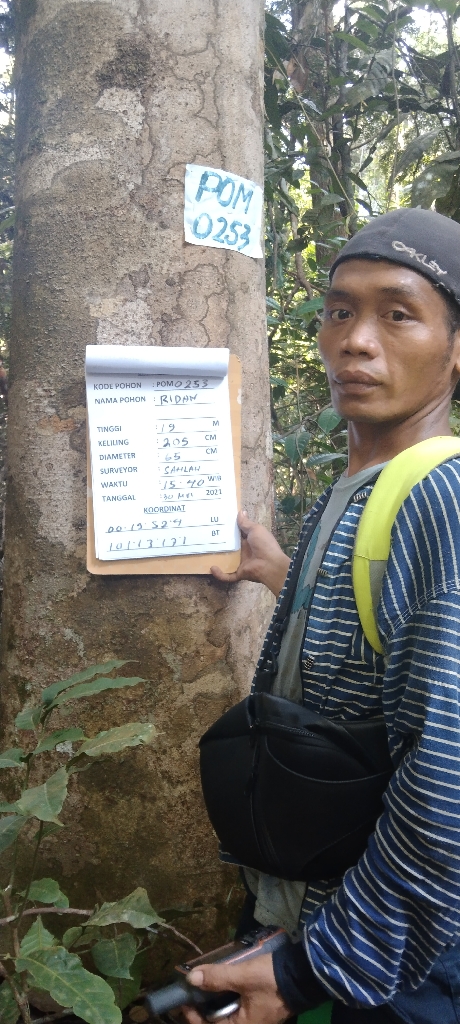 POM
0253
OAKLEY
KODE POHON : POM 0253
NAMA POHON : RIDAN
TINGGI : 19 M
KELILING : 205 CM
DIAMETER : 65 CM
SURVEYOR : SAHLAN
WAKTU : 15:40 WIB
TANGGAL : 30 MEI 2021
KOORDINAT
00:19:52.4 LU
101:13:171 BT